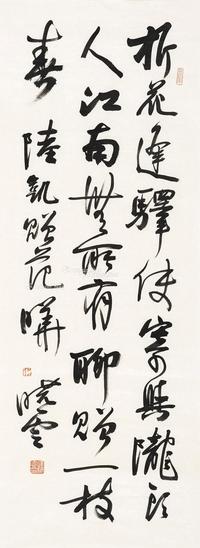 折花逢驛使寄與隴頭
人江南無所有聊贈一枝
春 陸凱贈范曄 曉雲